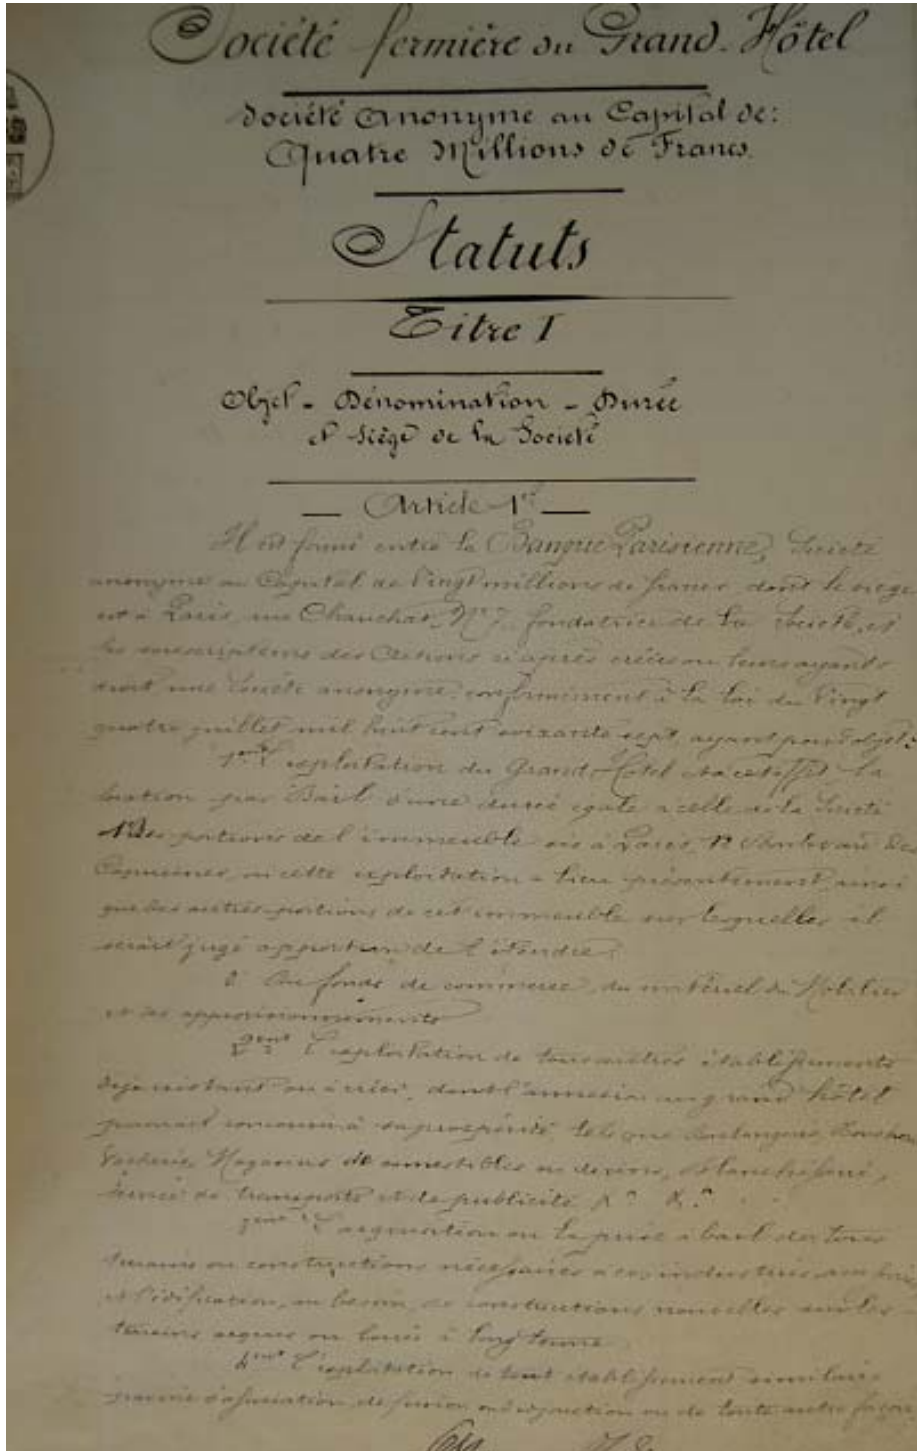 Société fermière du Grand-Hôtel
Société Anonyme au Capital de:
Quatre Millions de Francs.
Statuts
Titre I
Objet - Dénomination - Durée
et Siège de la Société
Article 1er
Il est formé entre la Banque Parisienne, Société
anonyme au Capital de Vingt millions de francs dont le siège
est à Paris, rue Chauchat, No 7, fondatrice de la Société, et
les souscripteurs des Actions ci après créées ou leurs ayants
droit une Société anonyme, conformément à la loi du Vingt
quatre juillet mil huit cent soixante sept, ayant pour objet:
1ent L'exploitation du Grand-Hôtel et à cet effet la
location par Bail d'une durée égale à celle de la Société
des portions de l'immeuble sis à Paris, 12 Boulevard des
Capucines, où cette exploitation a lieu présentement, ainsi
que des autres portions de cet immeuble sur lesquelles il
serait jugé opportun de l'étendre;
fonds de commerce, du matériel du Mobilier
et des approvisionnements
2ent L'exploitation de tous autres établissements
déjà existant ou à créer, dont l'annexion au grand hôtel
pourrait concourir à sa prospérité tels que Boulangerie, Boucherie
Magasins de comestibles ou de vins, Blanchisserie,
Service de transports et de publicité &a &a
3ent L'acquisition ou la prise à bail de tous
terrains ou constructions nécessaires à ces industries
et l'édification, au besoin, de constructions nouvelles sur les
terrains acquis ou loués à long terme.
4ent L'exploitation de tout établissement similaire
d'association, de fusion, ou de toute autre façon